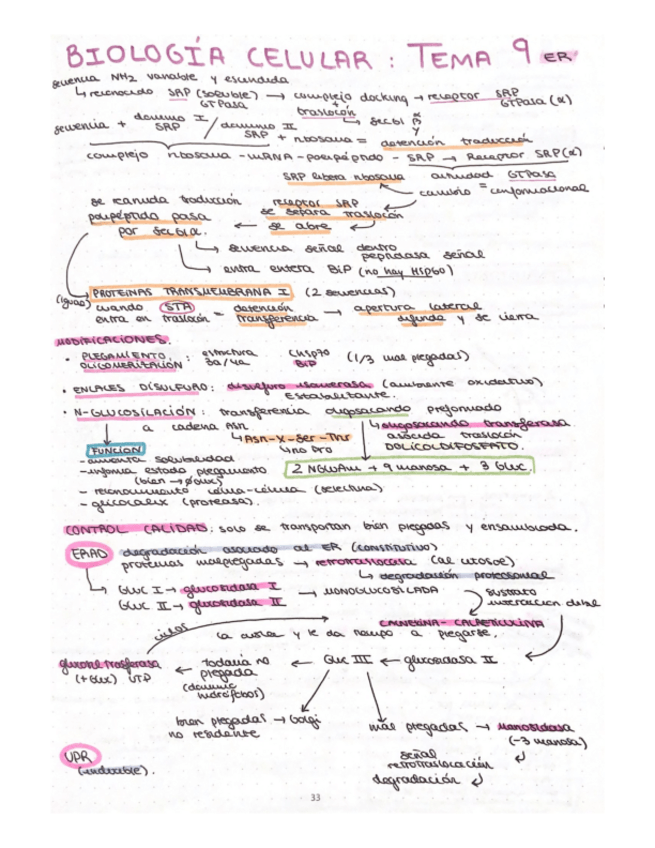 BIOLOGÍA CELULAR : TEMA 9 ER
secuencia NH2 variable y escindida
↳ reconocido SRP (soluble) → complejo docking → receptor SRP
GTPasa + GTPasa (α)
traslocón
↳ sec61 α β γ
secuencia + dominio I SRP / dominio II SRP + ribosoma = detención traducción
complejo ribosoma - mRNA - polipéptido - SRP → Receptor SRP(α)
SRP libera ribosoma ← actividad GTPasa
cambio = conformacional
se reanuda traducción
polipéptido pasa
por sec61α.
receptor SRP
se separa traslocón
← se abre ←
↳ secuencia señal dentro
peptidasa señal
↳ entra entera BiP (no hay HSP60)
PROTEÍNAS TRANSMEMBRANA I (2 secuencias)
(igual) cuando STA = detención → apertura lateral
entra en traslocón transferencia difunde y se cierra
MODIFICACIONES.
• PLEGAMIENTO : estructura CHSP70 (1/3 mal plegadas)
OLIGOMERIZACIÓN 3a/4a BiP
• ENLACES DISULFURO: disulfuro isomerasa (ambiente oxidativo)
Estabilizante.
• N-GLUCOSILACIÓN : transferencia oligosacárido preformado
a cadena Asn. ↳ oligosacárido transferasa
↳ Asn-X-Ser-Thr asociada traslocón
↳ no Pro DOLICOLDIFOSFATO.
FUNCIÓN
- aumenta solubilidad
- informa estado plegamiento
(bien → ∅ gluc)
2 NGlcAm + 9 manosa + 3 Gluc.
- reconocimiento célula-célula (selectina)
- glicocálix (proteasa).
CONTROL CALIDAD: solo se transportan bien plegadas y ensamblada.
ERAD degradación asociada al ER (CONSTITUTIVO)
proteínas malplegadas → retrotraslocasa (al citosol)
↳ degradación proteosomal
↳ Gluc I → glucosidasa I → MONOGLUCOSILADA
Gluc II → glucosidasa II
sustrato
interacción débil
CALNEXINA - CALRETICULINA
ciclos
la asocia y le da tiempo a plegarse.
glucosil trasferasa ← todavía no ← Gluc III ← glucosidasa II
(+Gluc) UTP plegada
(dominio
hidrófobos)
bien plegadas → Golgi
no residente
mal plegadas → manosidasa
(-3 manosa)
señal
retrotraslocación
degradación ↲
UPR
(inducible).
33